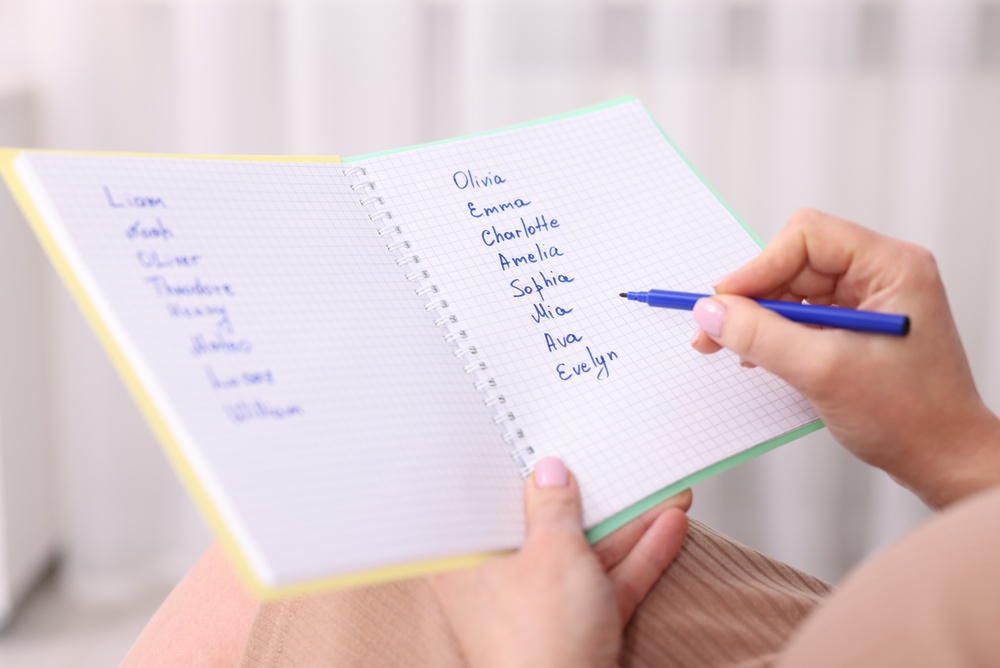 Liam
Noah
Oliver
Theodore
Henry
Mateo
Lucas
William
Olivia
Emma
Charlotte
Amelia
Sophia
Mia
Ava
Evelyn